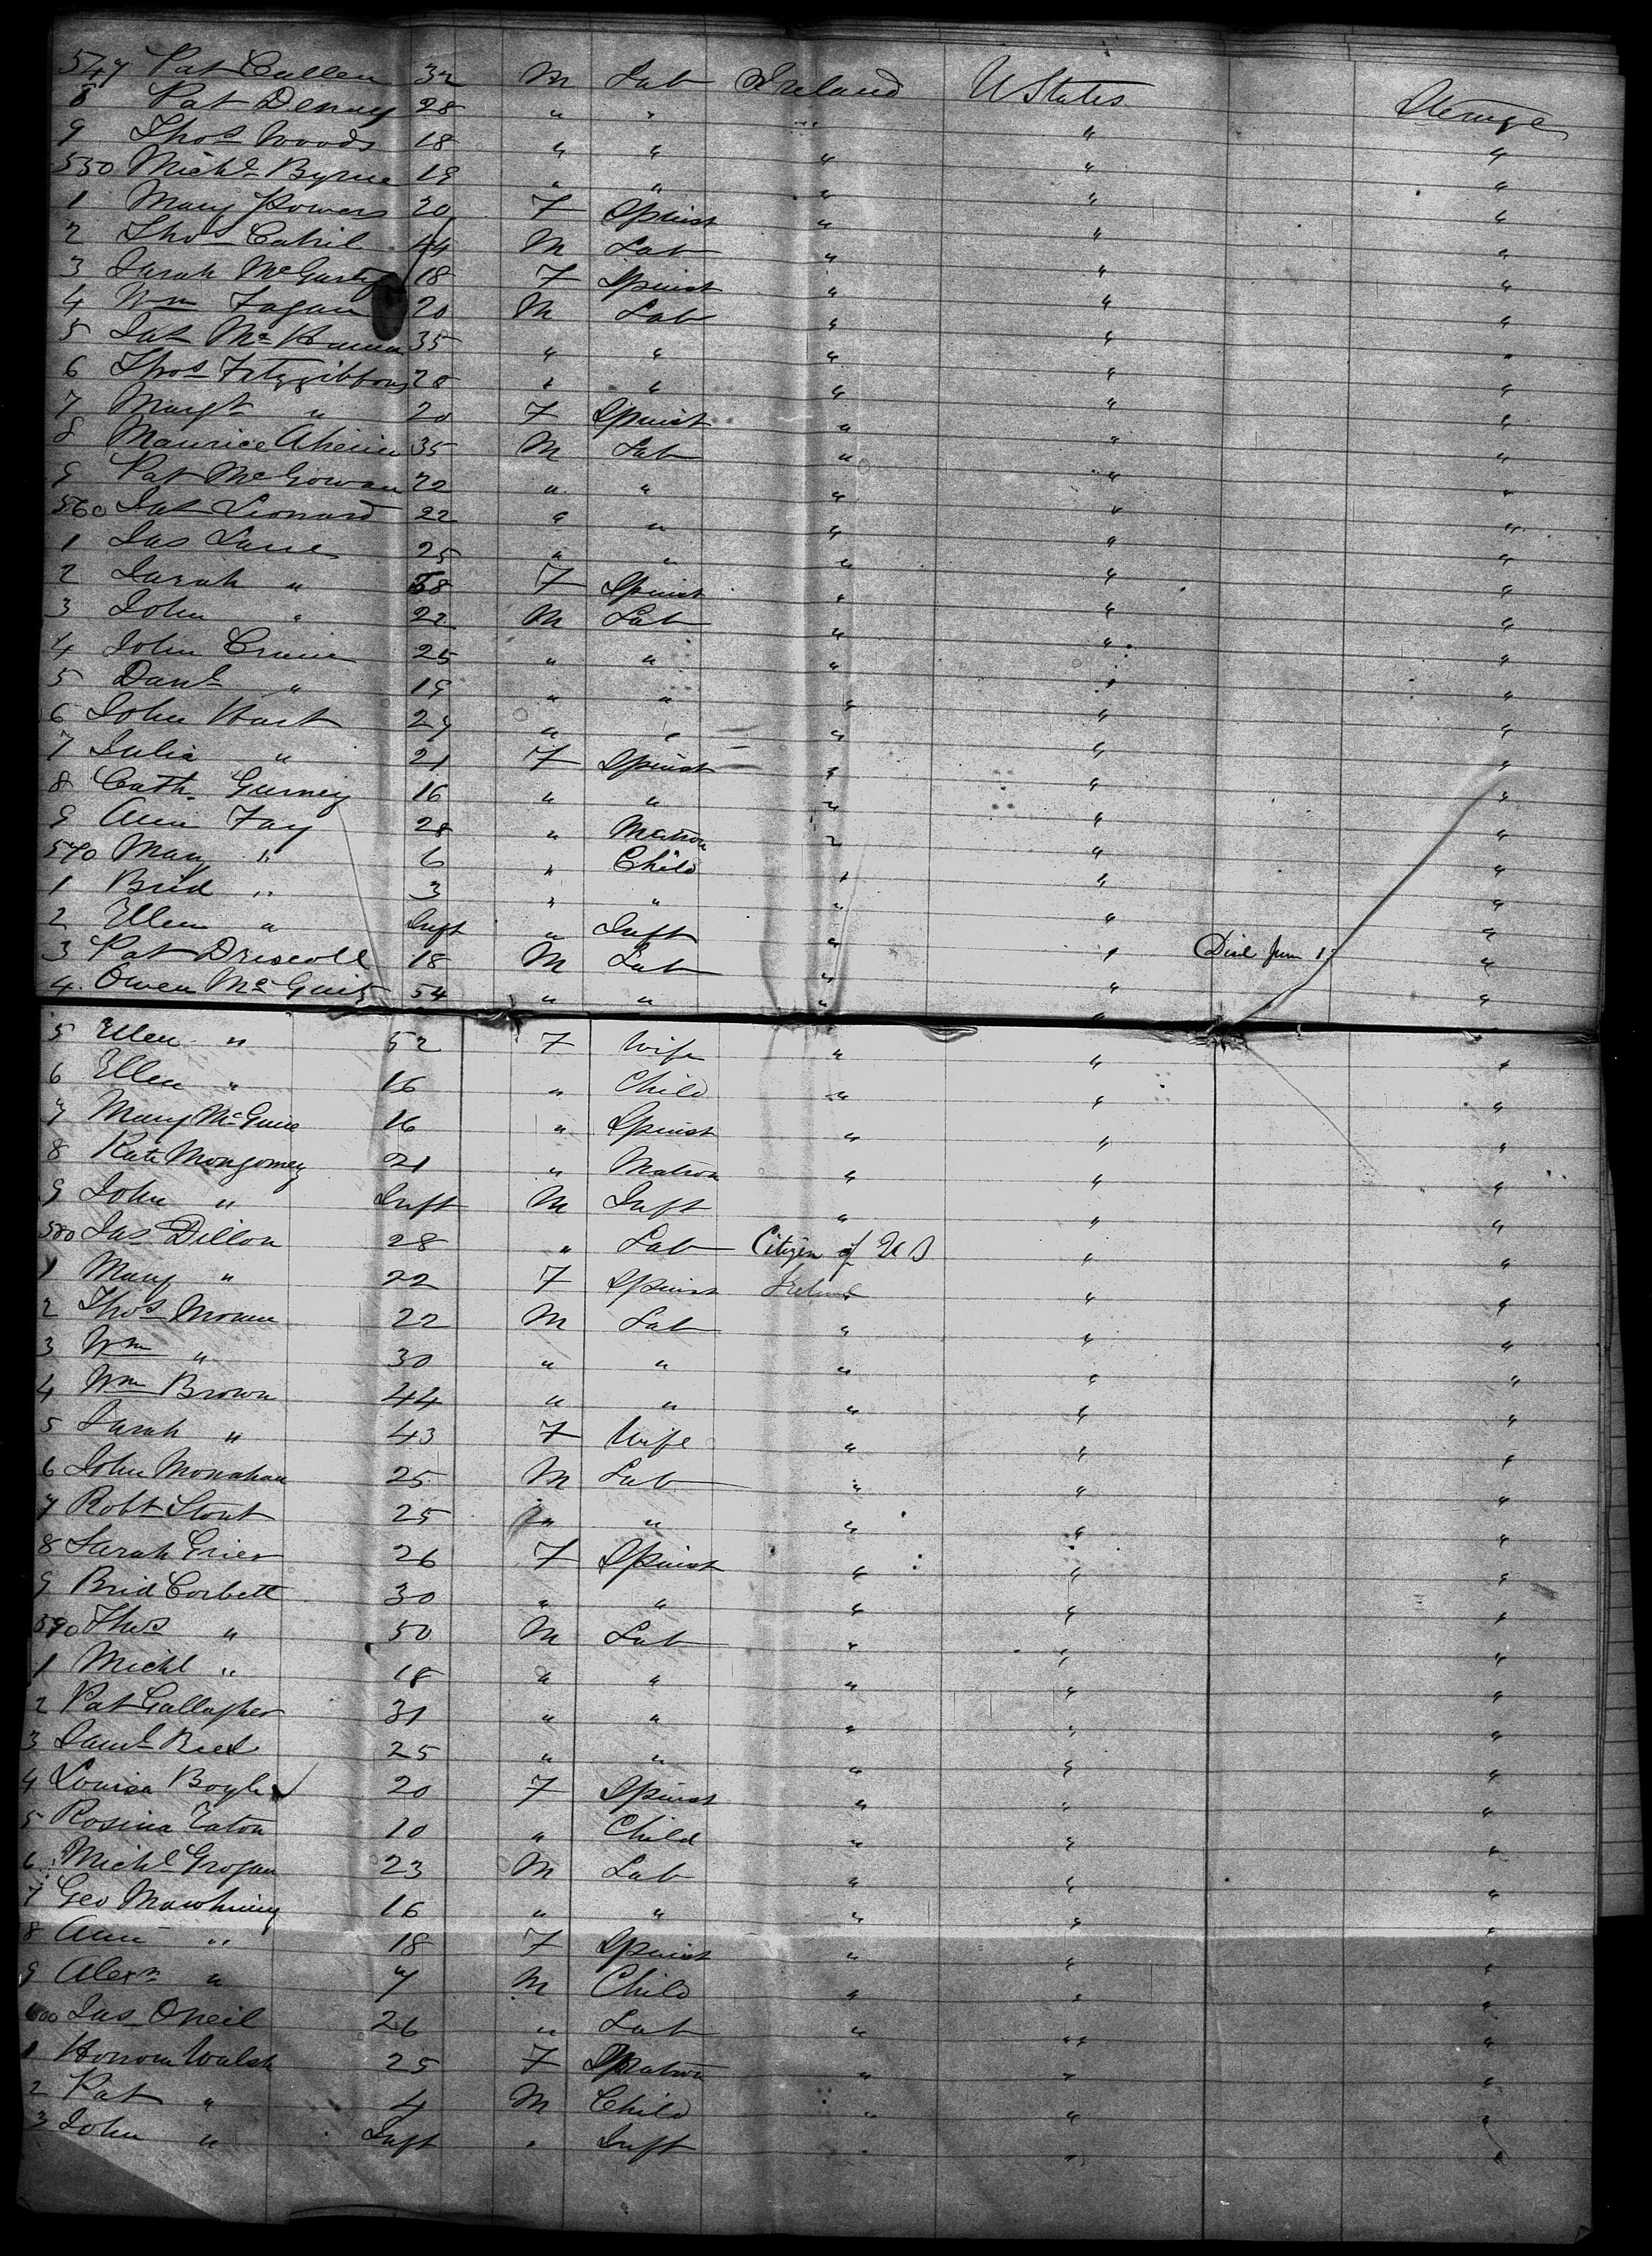 547 Pat Cullen 32 M Lab Ireland U States Steerage
8 Pat Denny 28 " " " " "
9 Thos Woods 18 " " " " "
550 Michl Byrne 19 " " " " "
1 Mary Powers 20 F Spinst " " "
2 Thos Cahil 44 M Lab " " "
3 Sarah McGarty 18 F Spinst " " "
4 Wm Fagan 20 M Lab " " "
5 Jas Mc 35 " " " " "
6 Thos Fitzgibbons 28 " " " " "
7 Margt " 20 F Spinst " " "
8 Maurice Ahern 35 M Lab " " "
9 Pat McGowan 22 " " " " "
560 Jas Leonard 22 " " " " "
1 Jas Lane 25 " " " " "
2 Sarah " 68 F Spinst " " "
3 John " 22 M Lab " " "
4 John Crane 25 " " " " "
5 Danl " 19 " " " " "
6 John Hart 27 " " " " "
7 Julia " 21 F Spinst " " "
8 Cath. Gurney 16 " " " " "
9 Ann Fay 28 " Matron " " "
570 Mary " 6 " Child " " "
1 Brid " 3 " " " " "
2 Ellen " Inft " Inft " " "
3 Pat Driscoll 18 M Lab " " Died June "
4 Owen McGuire 54 " " " " "
5 Ellen " 52 F Wife " " "
6 Ellen " 16 " Child " " "
7 Mary McGuire 16 " Spinst " " "
8 Kate Mongomey 21 " Matron " " "
9 John " Inft M Inft " " "
580 Jas Dillon 28 " Lab Citizen of U S " "
1 Mary " 22 F Spinst Ireland " "
2 Thos Moran 22 M Lab " " "
3 Wm " 30 " " " " "
4 Wm Brown 44 " " " " "
5 Sarah " 43 F Wife " " "
6 John Monahan 25 M Lab " " "
7 Robt Stout 25 " " " " "
8 Sarah Grier 26 F Spinst " " "
9 Brid Corbett 30 " " " " "
590 Thos " 50 M Lab " " "
1 Michl " 18 " " " " "
2 Pat Gallagher 31 " " " " "
3 Saml Reed 25 " " " " "
4 Louisa Boyle 20 F Spinst " " "
5 Rosina Eaton 10 " Child " " "
6 Michl Grogan 23 M Lab " " "
7 Geo Mawhinny 16 " " " " "
8 Ann " 18 F Spinst " " "
9 Alexr " 7 M Child " " "
600 Jas ONeil 26 " Lab " " "
1 Honora Walsh 25 F Matron " " "
2 Pat " 4 M Child " " "
3 John " Inft " Inft " " "